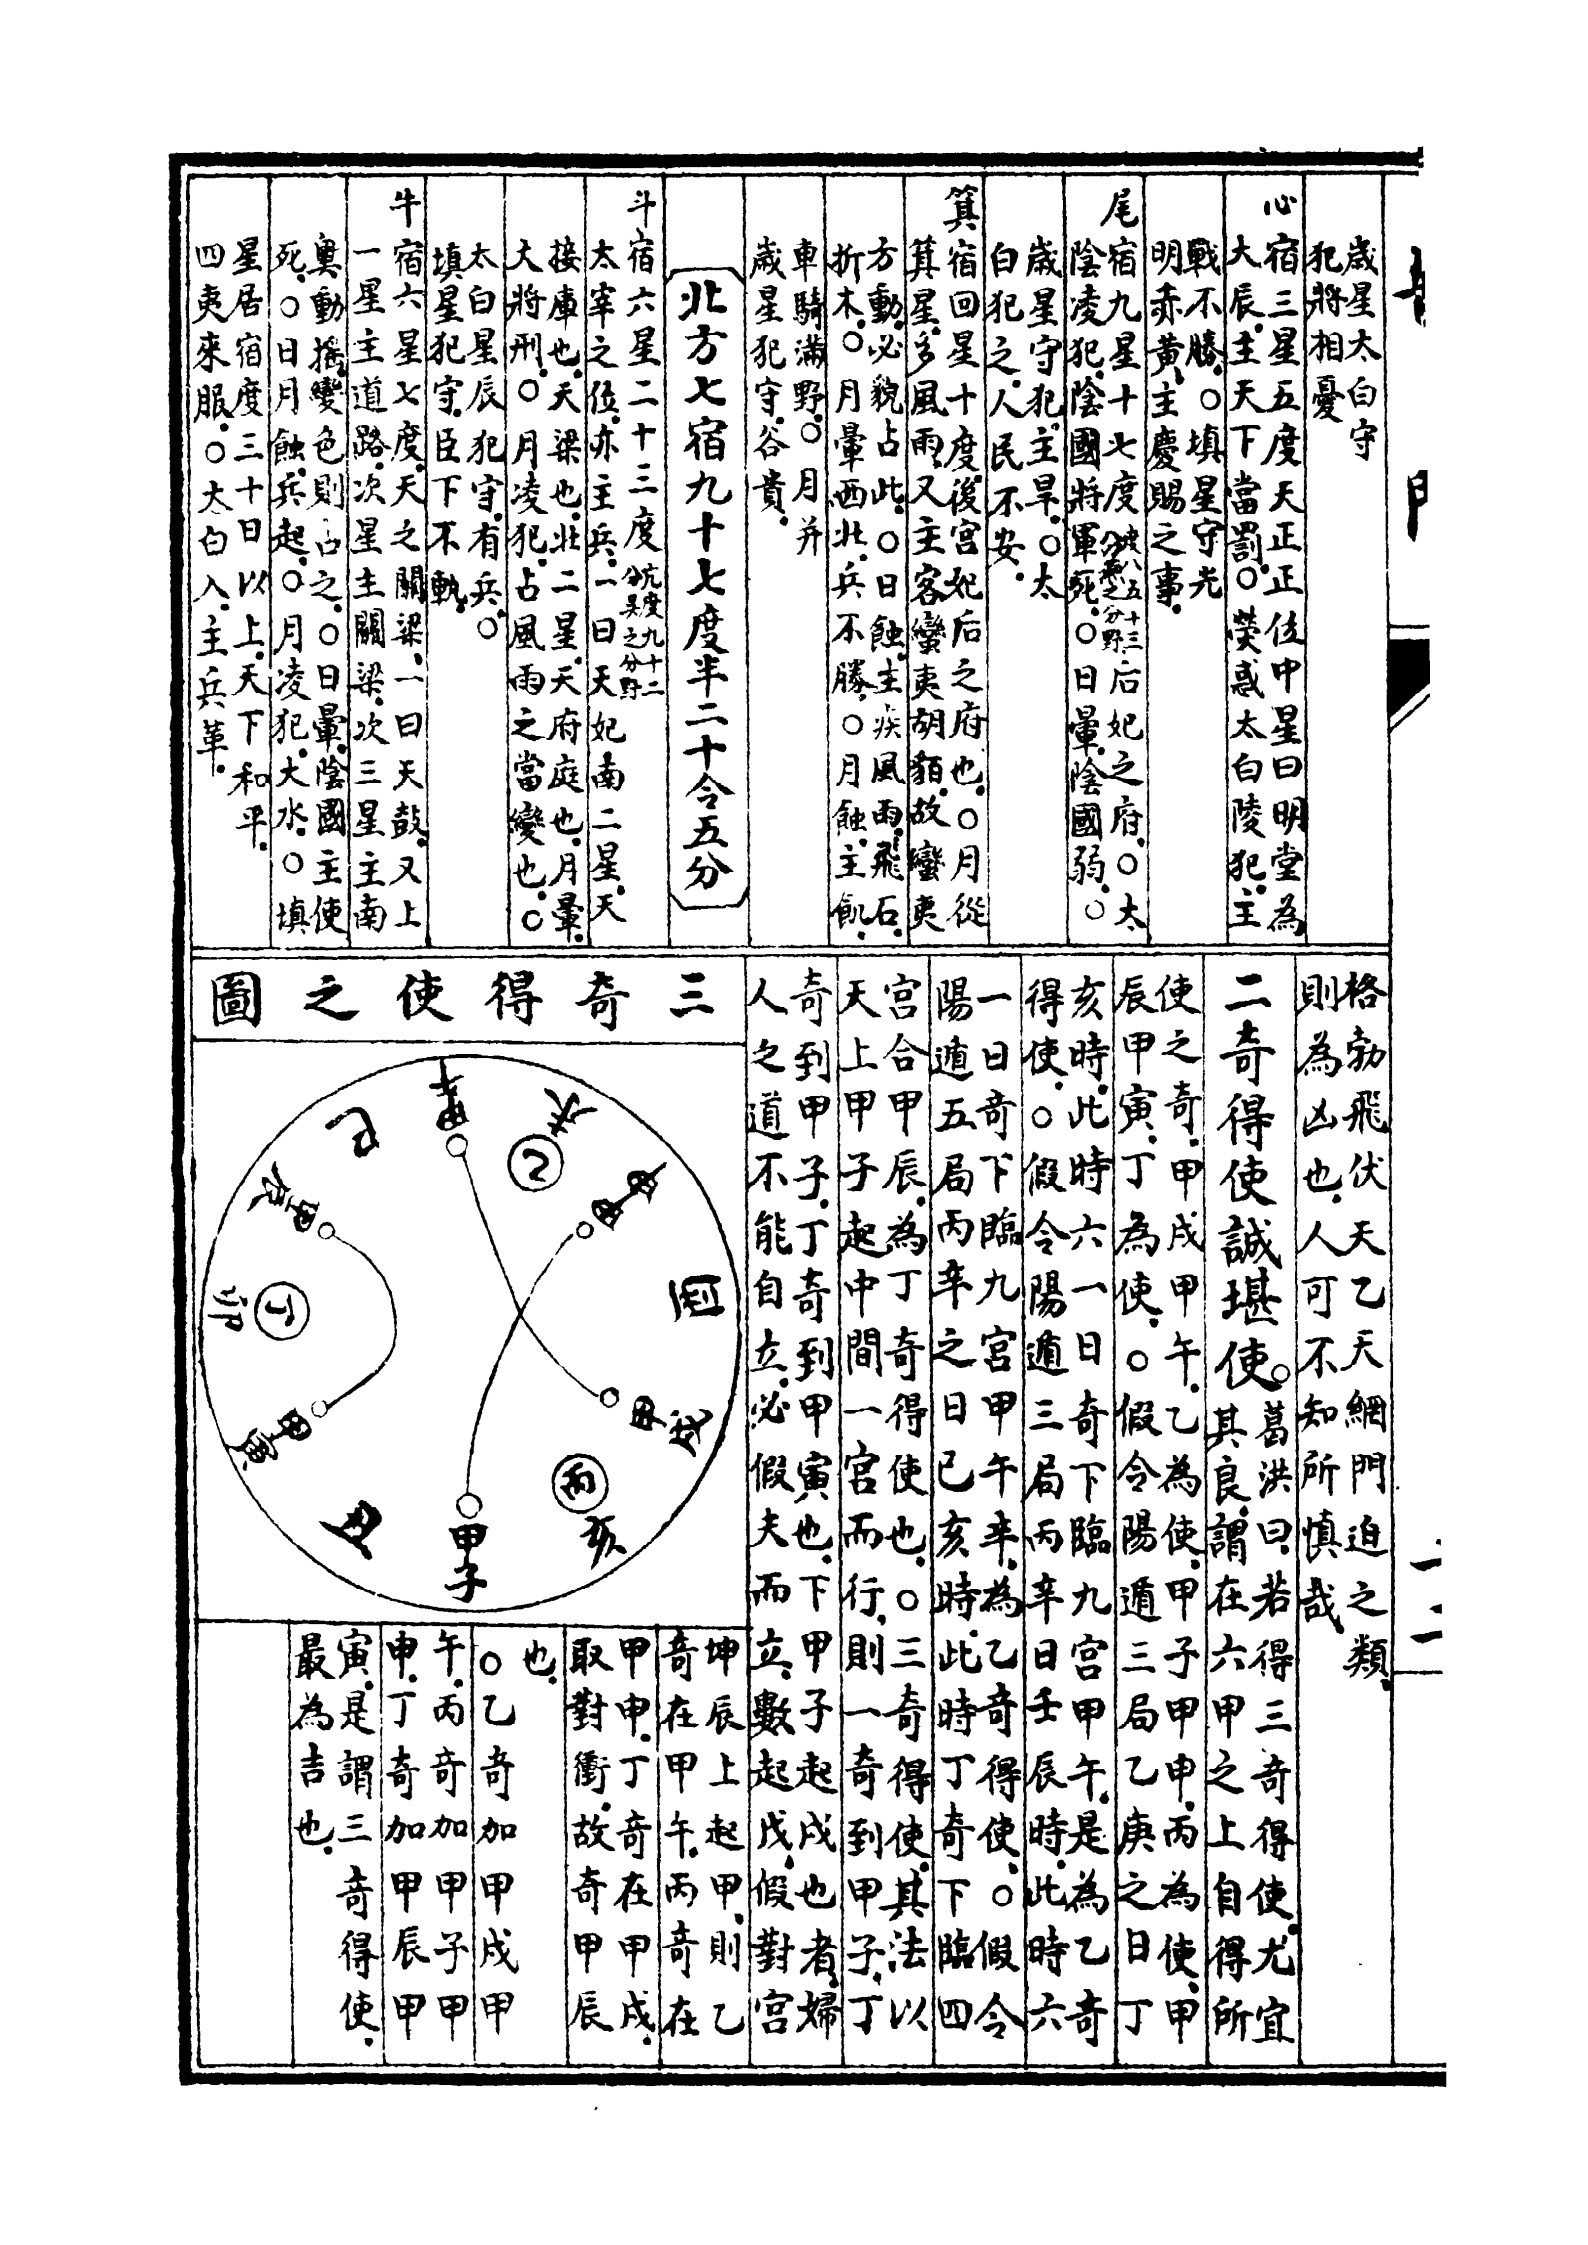 歲星太白守
犯將相憂
心宿三星五度天正正位中星曰明堂為
大辰主天下當罰○熒惑太白陵犯主
戰不勝○填星守光
明赤黃主慶賜之事
尾宿九星十七度
分燕之分野
后妃之府○太
陰凌犯陰國將軍死○日暈陰國弱○
歲星守犯主旱○太
白犯之人民不安
箕宿回星十度後宮妃后之府也○月從
箕星多風雨又主客蠻夷胡貊故蠻夷
方動必貌占此○日蝕主疾風雨飛石
折木○月暈西北兵不勝○月蝕主飢
車騎滿野○月并
歲星犯守谷貴
北方七宿九十七度半二十令五分
斗宿六星二十三度
亢度九十二
分吳之分野
太宰之位亦主兵一曰天妃南二星天
接庫也天梁也北二星天府庭也月暈
大將刑○月凌犯占風雨之當變也○
太白星辰犯守有兵○
填星犯守臣下不軌
牛宿六星七度天之關梁一曰天鼓又上
一星主道路次星主關梁次三星主南
奧動搖變色則占之○日暈陰國主使
死○日月蝕兵起○月凌犯大水○填
星居宿度三十日以上天下和平
四夷來服○太白入主兵革
格勃飛伏天乙天網門迫之類
則為凶也人可不知所慎哉
二奇得使誠堪使○
葛洪曰若得三奇得使尤宜
其良謂在六甲之上自得所
使之奇甲戌甲午乙為使甲子甲申丙為使甲
辰甲寅丁為使○假令陽遁三局乙庚之日丁
亥時此時六一日奇下臨九宮甲午是為乙奇
得使○假令陽遁三局丙辛日壬辰時此時六
一日奇下臨九宮甲午辛為乙奇得使○假令
陽遁五局丙辛之日已亥時此時丁奇下臨四
宮合甲辰為丁奇得使也○三奇得使其法以
天上甲子起中間一宮而行則一奇到甲子丁
奇到甲子丁奇到甲寅也下甲子起戌也者婦
人之道不能自立必假夫而立數起戊假對宮
坤辰上起甲則乙
奇在甲午丙奇在
甲申丁奇在甲戌
取對衝故奇甲辰
也
○乙奇加甲戌甲
午丙奇加甲子甲
申丁奇加甲辰甲
寅是謂三奇得使
最為吉也
三奇得使之圖
甲午
未
乙
甲申
酉
甲戌
丙
亥
甲子
丑
甲寅
丁
卯
甲辰
巳